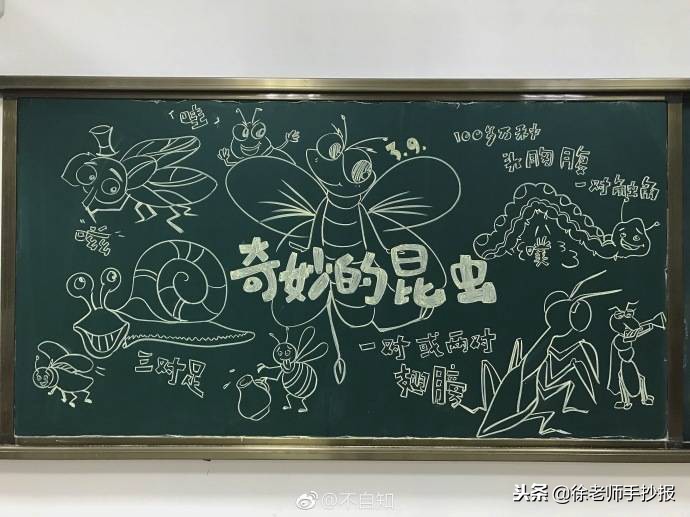 「哇」
3.9.
100多万种
头胸腹
一对触角
嗞兹
噗
奇妙的昆虫
三对足
一对或两对
翅膀
@不自知
头条 @徐老师手抄报